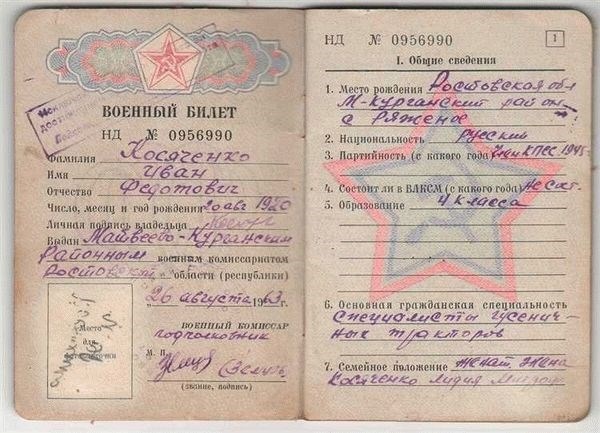 Исключен
достиг
ВОЕННЫЙ БИЛЕТ
НД № 0956990
Фамилия Косяченко
Имя Иван
Отчество Федотович
Число, месяц и год рождения 20 авг 1920
Личная подпись владельца
Выдан Матвеево-Курганским
районным военным комиссариатом
Ростовской области (республики)
26 августа 1963 г.
Место
для
ВОЕННЫЙ КОМИССАР
подполковник
М. П.
(звание, подпись)
НД № 0956990
1
I. Общие сведения
1. Место рождения Ростовская обл
М-Курганский район
с Ряженое
2. Национальность русский
3. Партийность (с какого года) КПСС 1945
4. Состоит ли в ВЛКСМ (с какого года) Не сост.
5. Образование 4 класса
6. Основная гражданская специальность
специалисты гусенич-
ных тракторов
7. Семейное положение женат, жена
Косяченко Лидия